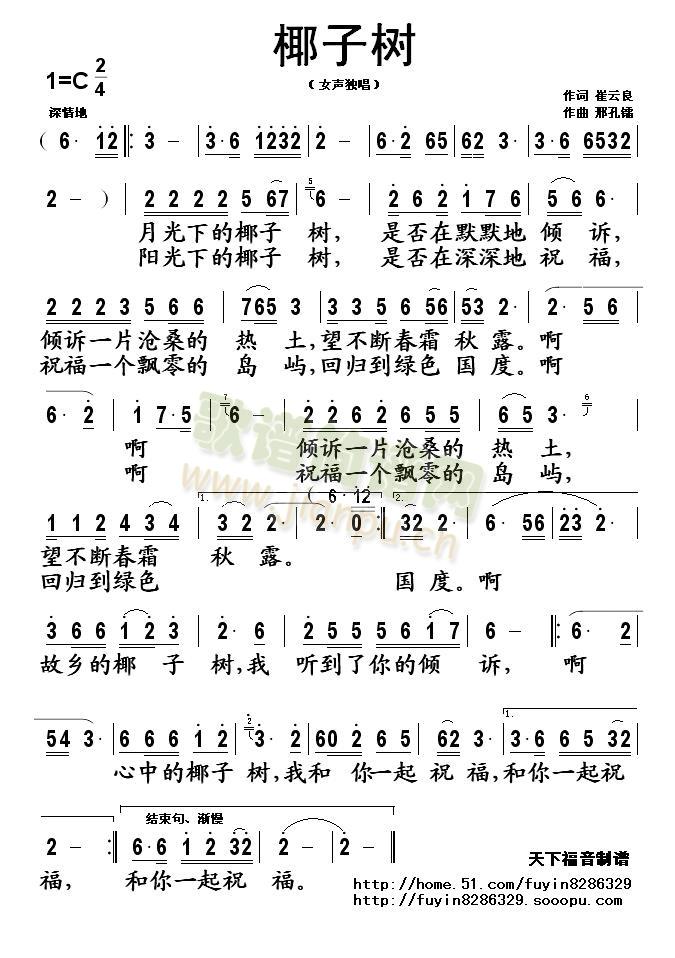 椰子树
（女声独唱）
1=C 2/4
作词 崔云良
作曲 邢孔镭
深情地
( 6· 12 3 – 3·6 1232 2 – 6·2 65 62 3 3·6 6532
2 – ) 2 2 2 2 5 67 5 6 – 2 6 2 1 7 6 5 6 6·
月光下的椰子 树， 是否在默默地 倾 诉，
阳光下的椰子 树， 是否在深深地 祝 福，
2 2 2 3 5 6 6 765 3 3 3 5 6 56 53 2· 2· 5 6
倾诉一片沧桑的 热 土，望不断春霜 秋 露。啊
祝福一个飘零的 岛 屿，回归到绿色 国 度。啊
6· 2 1 7·5 7 6 – 2 2 6 2 6 5 5 6 5 3· 6
啊 倾诉一片沧桑的 热 土，
啊 祝福一个飘零的 岛 屿，
歌谱简谱网
www.jianpu.cn
( 6·12
1 1 2 4 3 4 1. 3 2 2· 2· 0 2. 32 2· 6· 56 23 2·
望不断春霜 秋 露。
回归到绿色 国 度。啊
3 6 6 1 2 3 2· 6 2 5 5 5 6 1 7 6 – 6· 2
故乡的椰 子 树，我 听到了你的倾 诉， 啊
54 3· 6 6 6 1 2 2 3· 2 60 2 6 5 62 3· 1. 3·6 6 5 32
心中的椰子 树，我和 你一起 祝 福，和你一起祝
结束句、渐慢
2 – 6·6 1 2 32 2 – 2 –
福， 和你一起祝 福。
天下福音制谱
http://home.51.com/fuyin8286329
http://fuyin8286329.sooopu.com